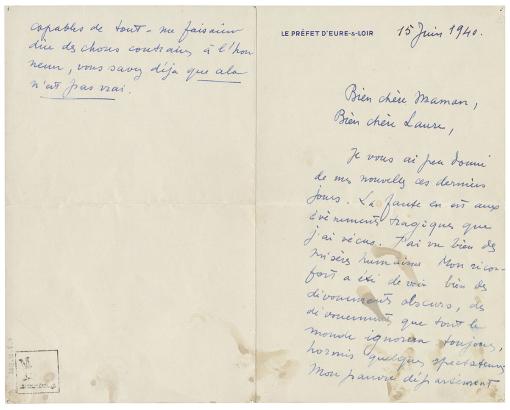 LE PRÉFET D'EURE-&-LOIR
15 Juin 1940.
Bien chère Maman,
Bien chère Laure,
Je vous ai peu donné
de mes nouvelles ces derniers
jours. La faute en est aux
évènements tragiques que
j'ai vécus. J'ai vu bien des
misères humaines. Mon récon-
fort a été de voir bien des
dévouements obscurs, des
dévouements que tout le
monde ignorera toujours,
hormis quelques spectateurs.
Mon pauvre département
capables de tout - me faisaient
dire des choses contraires à l'hon
neur, vous savez déjà que cela
n'est pas vrai.